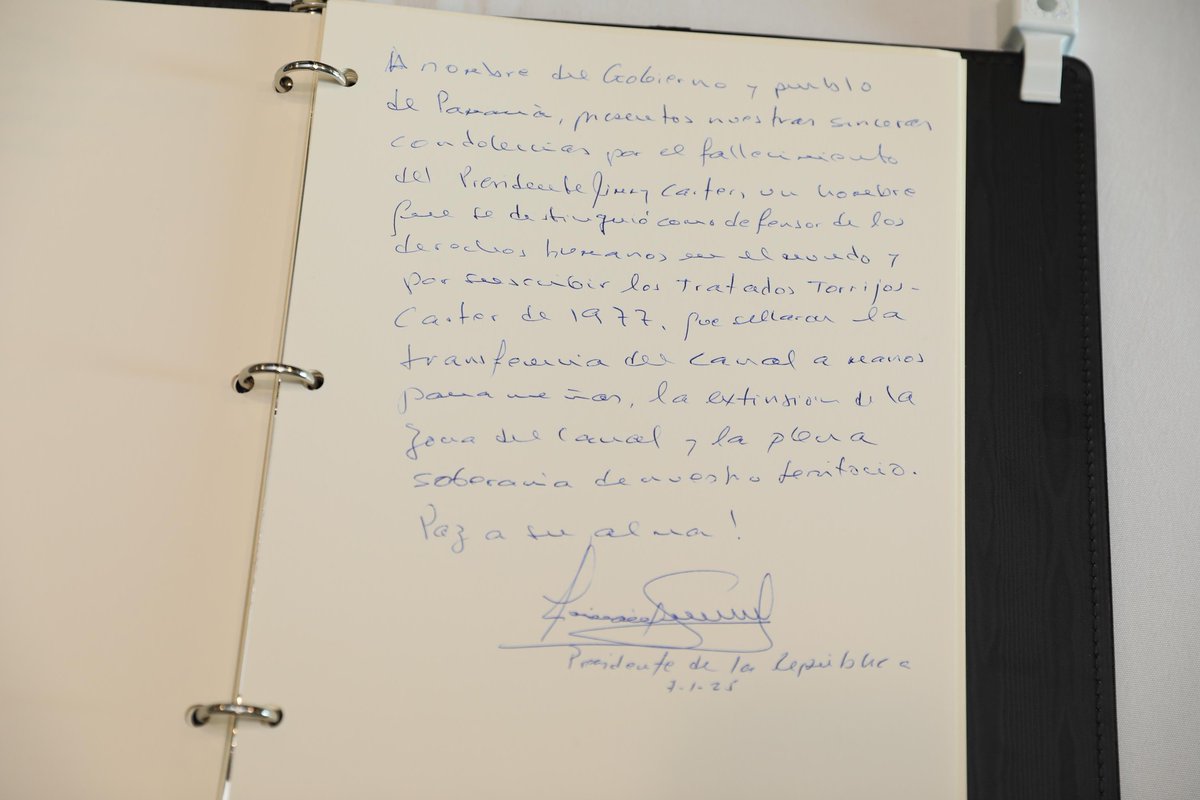 A nombre del Gobierno y pueblo
de Panamá, presentos nuestras sinceras
condolencias por el fallecimiento
del Presidente Jimmy Carter, un hombre
que se destinguió como defensor de los
derechos humanos en el mundo y
por suscribir los Tratados Torrijos-
Carter de 1977, que sellaron la
transferencia del Canal a manos
panameñas, la extinsion de la
Zona del Canal y la plena
soberania de nuestro territorio.
Paz a su alma!
Presidente de la República
7-1-25